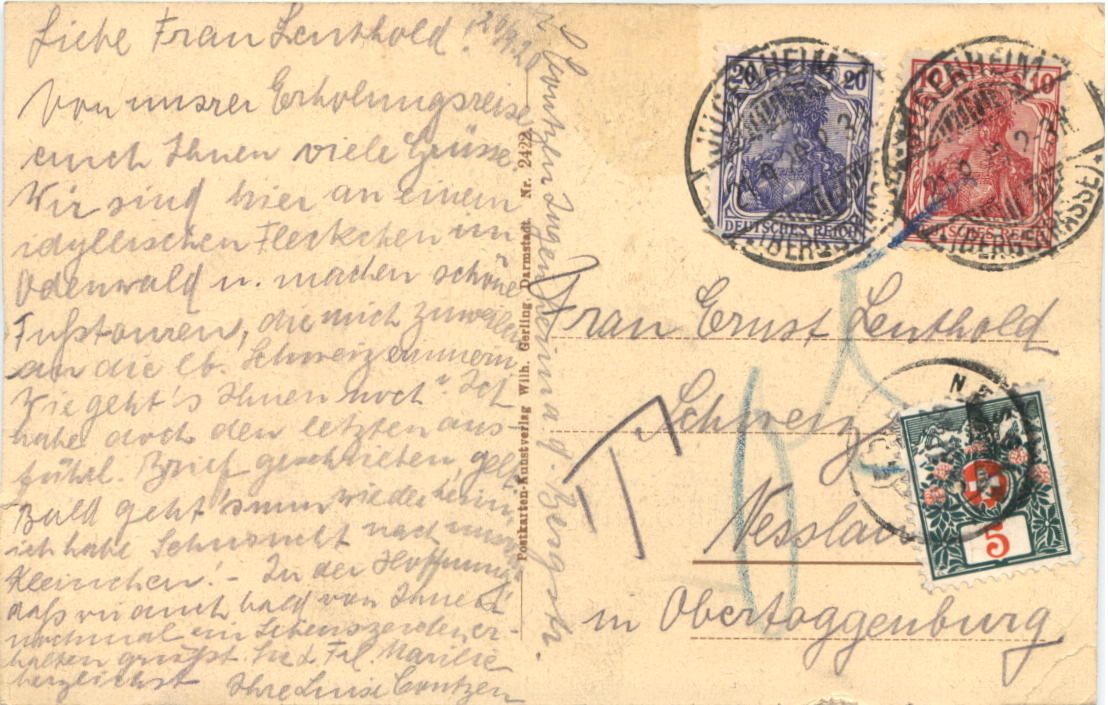 Liebe Frau Lenthold!
Von unsrer Erholungsreise
auch Ihnen viele Grüsse.
Wir sind hier an einem
idyllischen Fleckchen im
Odenwald u. machen schöne
Fußtouren, die mich zuweilen
an die lb. Schweiz erinnern.
Wie geht's Ihnen noch? Ich
habe doch den letzten aus-
führl. Brief geschrieben, gelt?
Bald geht's nun wieder heim,
ich habe Sehnsucht nach
Kleinchen! - In der Hoffnung
daß wir auch bald von Ihnen
nochmal ein Lebenszeichen er-
halten grüsst Sie & Frl. Marilie
herzlichst Ihre Luise Contzen
Jugenheim a. d. Bergstr.
Postkarten-Kunstverlag Wilh. Gerling, Darmstadt. Nr. 2422
20 20
DEUTSCHES REICH
10
DEUTSCHES REICH
JUGENHEIM
(BERGSTRASSE)
T
Frau Ernst Lenthold
Schweiz
Nesslau
in Obertoggenburg
5